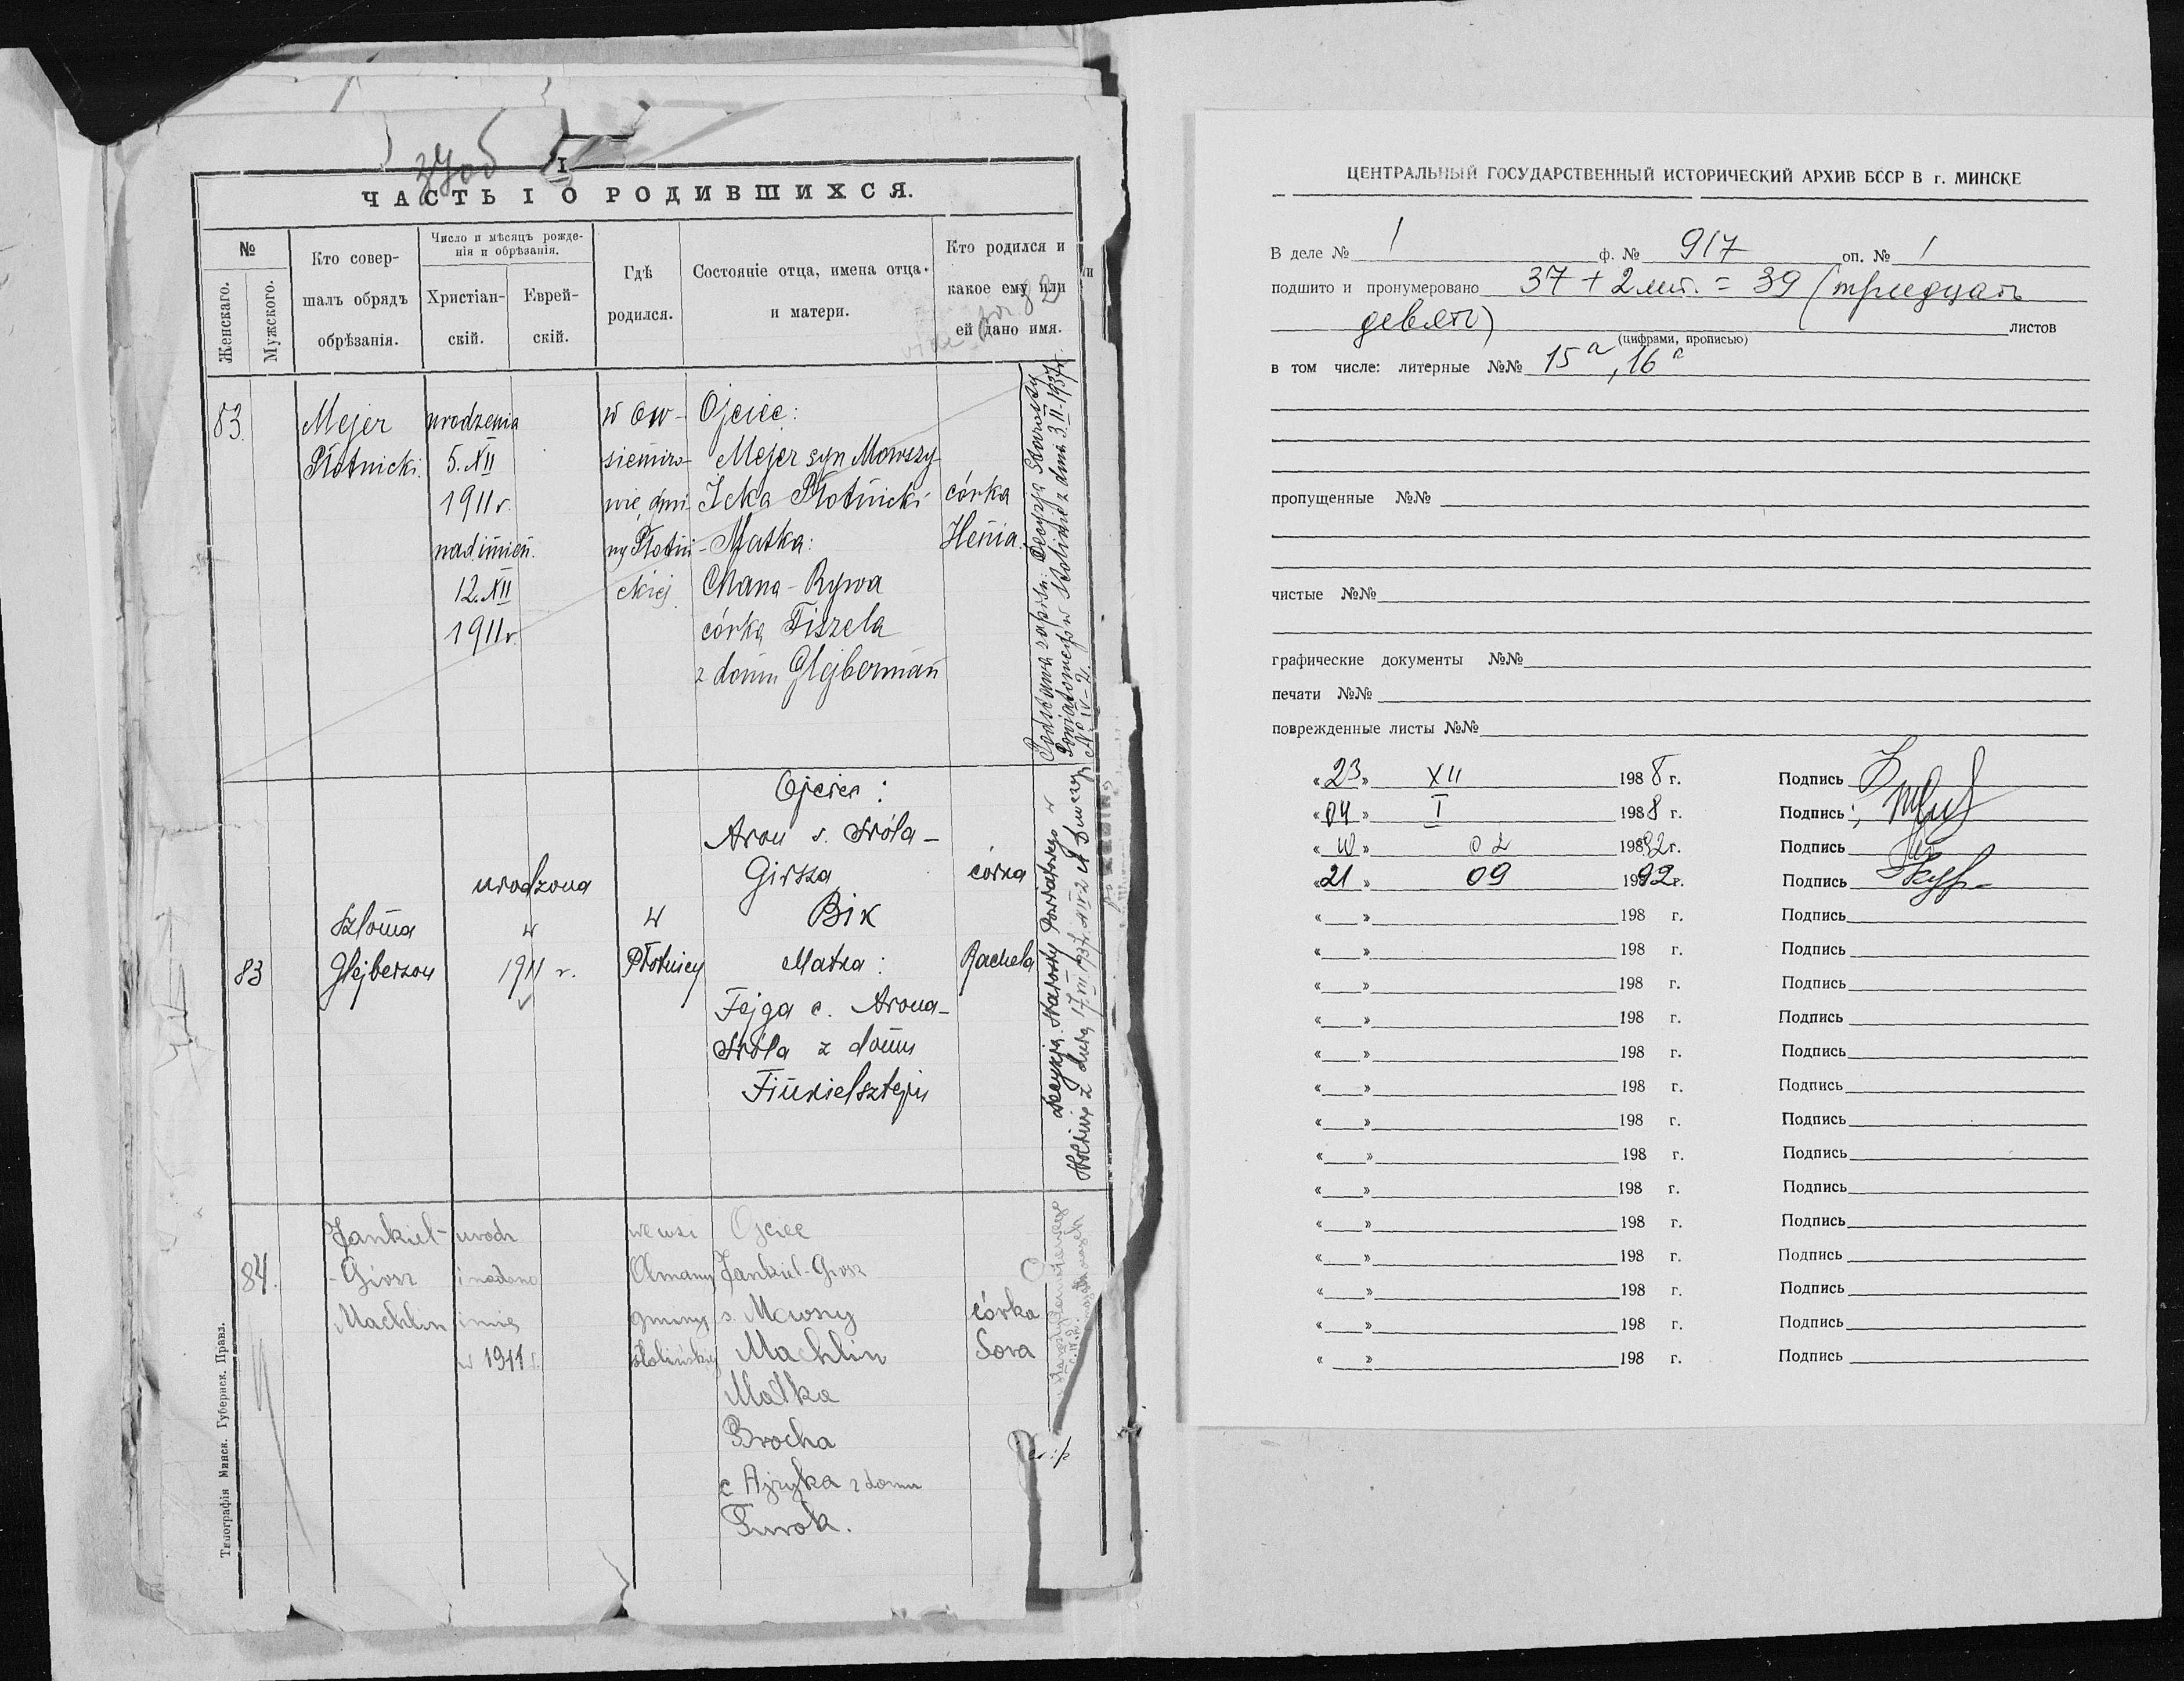 34об
I
ЧАСТЬ I О РОДИВШИХСЯ.
№
Женскаго.
Мужского.
Кто совер-
шалъ обрядъ
обрѣзанія.
Число и мѣсяцъ рожде-
нія и обрѣзанія.
Христіан-
скій.
Еврей-
скій.
Гдѣ
родился.
Состояніе отца, имена отца
и матери.
Кто родился и
какое ему или
ей дано имя.
83.
Mejer
Płotnicki
urodzenia
5.XII
1911 r.
nad.imień.
12.XII
1911 r.
w Ow-
siemiro-
wie, gmi-
ny Płotni-
ckiej
Ojciec:
Mejer syn Mowszy-
Icka Płotnicki
Matka:
Chana-Rywa
córka Fiszela
z domu Glejberman
córka
Henia.
Podstawa zapisu: Decyzja Starosty
Powiatowego w Stolinie z dnia 3.II-1937r.
№ IV-2.
83
Szloma
Glejberzon
urodzona
w
1911 r.
w
Płotnicy
Ojciec:
Aron s. Sróla-
Girsza
Bik
Matka:
Fejga c. Arona-
Sróla z domu
Finkielsztejn
córka
Rachela
Decyzja Starosty Powiatowego w
Stolinie z dnia 17.III.1937r.
84.
Jankiel-
-Girsz
Machlin
urodz
i nadano
imię
w 1911 r.
we wsi
Olmany
gminy
stolińskiej
Ojciec
Jankiel-Girsz
s. Mowszy
Machlin
Matka
Brocha
c Ajzyka z domu
Turok.
córka
Sora
Типографія Минск. Губернск. Правл.
ЦЕНТРАЛЬНЫЙ ГОСУДАРСТВЕННЫЙ ИСТОРИЧЕСКИЙ АРХИВ БССР В г. МИНСКЕ
В деле № 1 ф. № 917 оп. № 1
подшито и пронумеровано 37 + 2 лит. = 39 (тридцать
девять) листов
(цифрами, прописью)
в том числе: литерные №№ 15а, 16а
пропущенные №№
чистые №№
графические документы №№
печати №№
поврежденные листы №№
«23» XII 198 г. Подпись
«04» I 1988 г. Подпись
« » 02 1992г. Подпись
«21» 09 1992г. Подпись
« » 198 г. Подпись
« » 198 г. Подпись
« » 198 г. Подпись
« » 198 г. Подпись
« » 198 г. Подпись
« » 198 г. Подпись
« » 198 г. Подпись
« » 198 г. Подпись
« » 198 г. Подпись
« » 198 г. Подпись
« » 198 г. Подпись
« » 198 г. Подпись
« » 198 г. Подпись
« » 198 г. Подпись